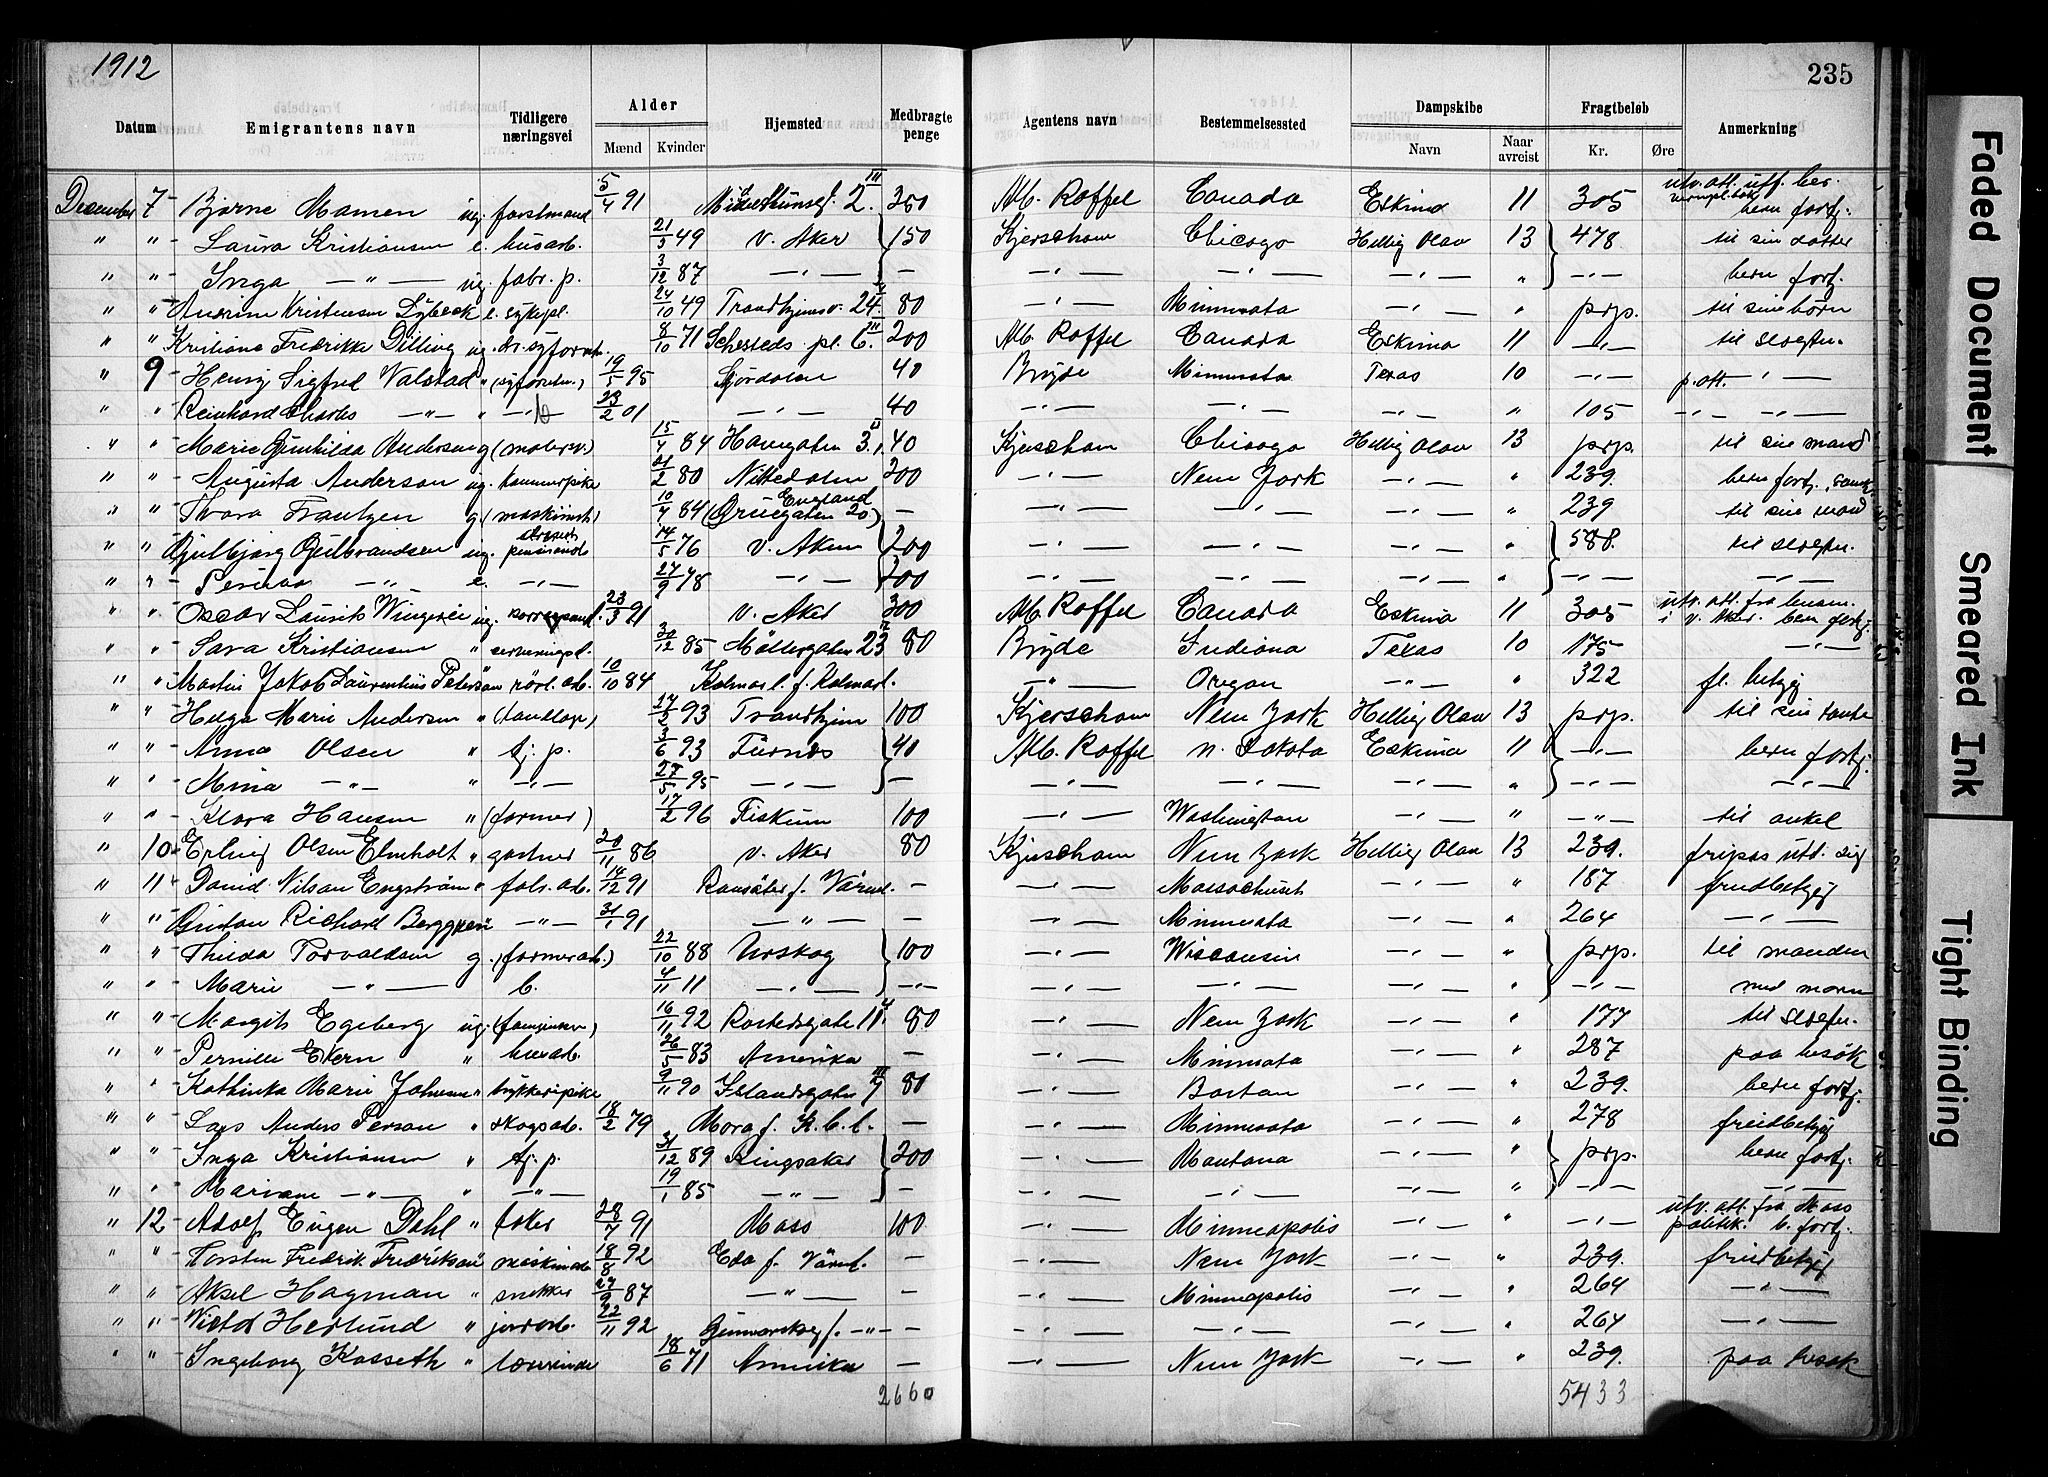 1912
235
Datum | Emigrantens navn | Tidligere næringsvei | Alder Mænd Kvinder | Hjemsted | Medbragte penge | Agentens navn | Bestemmelsessted | Dampskibe Navn Naar avreist | Fragtbeløb Kr. Øre | Anmerkning
December 7 - Bjarne Mamen ug. forstmand 5/4 91 2. III 350 Alb. Roffel Canada Eskimo 11 305 utv. att. utf. ber. bern fortj.
" " - Laura Kristiansen e. husarb. 21/5 49 V. Aker 150 Kjerscham Chicago Hellig Olav 13 478 til sin datter
" " - Inga — " — ug. fabr. p. 3/12 87 —"— — —"— —"— —"— " —"— bern fortj.
" " Kristensen Lybeck e. sykepl. 24/10 49 Trondhjemsv. 24 80 —"— Minnesota —"— " prp. til sine børn
" " Kristiane Fredrikke Dilling ug. 8/10 71 Schesteds pl. 6. III 200 Alb. Roffel Canada Eskimo 11 —"— til slegtn.
" 9 - Henry Sigfred Valstad " 19/5 95 Stjørdalen 40 Bryde Minnesota Texas 10 —"— p. att. —"—
" " - Reinhard Charles —"— " —"— 23/2 01 —"— 40 —"— —"— —"— " 105 —"— —"—
" " - Marie Gunhilda Anderson g. (malersv.) 15/4 84 Havegaten 3. II 40 Kjerscham Chicago Hellig Olav 13 prp. til sin mand
" " - Augusta Anderson ug. kammerpike 21/2 80 Nittedalen 200 —"— New York —"— " 239. bern fortj.
" " - Thora Frantzen g. (maskinist) 10/7 84 England (Gruegaten 20) — —"— —"— —"— " 239 til sin mand
" " Gulbjørg Gulbrandsen ug. 14/5 76 V. Aker 200 —"— —"— —"— " 588. til slegtn.
" " - —"— e. —"— 27/9 48 —"— 200 —"— —"— —"— " —"— —"—
" " - Oscar Laurits ug. 23/3 91 V. Aker 300 Alb. Roffel Canada Eskimo 11 305 utv. att. fra i V. Aker. bern fortj.
" " - Sara Kristiansen " serveringsd. 30/12 85 Møllergaten 23 80 Bryde Indiana Texas 10 175 —"—
" " Martin Jakob Laurentius Peterson rørl. arb. 10/10 84 Kalmar l. f. Kalmar. —"— Oregon —"— " 322 fl. betyg
" " - Helga Marie Andersen " (tandlæge) 17/2 93 Trondhjem 100 Kjerscham New York Hellig Olav 13 prp. til sin tante
" " - Anna Olsen " tj. p. 3/6 93 Furnes 40 Alb. Roffel N. Dakota Eskimo 11 —"— bern fortj.
" " - Mina —"— " —"— 27/5 95 —"— — —"— —"— —"— " —"— —"—
" " - Klara Hansen " (farmer) 17/2 96 Fiskum 100 —"— Washington —"— " —"— til onkel
" 10 - Erling Olsen Elmholt " gartner 20/11 86 V. Aker 80 Kjerscham New York Hellig Olav 13 239. fripas utd. Sig
" 11 - David Nilsson Engstrøm " fabr. arb. 14/12 91 Ransäter f. Värml. — —"— Massachuset —"— " 187 freidbetyg
" " - Gustav Richard Berggren —"— 31/1 91 —"— — —"— Minnesota —"— " 264 —"—
" " - Thilda Torvaldsen g. (farmerarb.) 22/10 88 Urskog 100 —"— Wisconsin —"— " prp. til manden
" " - Marie —"— b. 4/11 11 —"— —"— —"— —"— —"— " —"— med moren
" " - Margit Egeberg ug. 16/11 92 Rostedsgate 11 80 —"— New York —"— " 177 til slegtn.
" " - Pernille Ekern " husarb. 26/5 83 Amerika — —"— Minnesota —"— " 287 paa besøk
" " - Kathinka Marie Johnsen " trykkeripike 9/11 90 Islandsgaten 7 III 80 —"— Boston —"— " 239. bern fortj.
" " - Lars Anders Person " skogsarb. 18/2 79 Mora f. K. b. l. — —"— Minnesota —"— " 278 freidbetyg
" " - Inga Kristiansen " tj. p. 31/12 89 Ringsaker 200 —"— Montana —"— " prp. bern fortj.
" " - Mariane —"— " —"— 19/1 85 —"— — —"— —"— —"— " —"— —"—
" 12 - Adolf Eugen Dahl " 28/7 91 Moss 100 —"— Minneapolis —"— " —"— utv. att. fra Moss politik. b. fortj.
" " - Torsten Fredrik Fredriksson maskinarb 18/8 92 Eda f. Värml. — —"— New York —"— " 239. freidbetyg
" " - Aksel Hagman " snekker 27/9 87 —"— — —"— Minneapolis —"— " 264 —"—
" " - Victor Herlund " jordarb. 22/11 92 Gunnarskog f. —"— — —"— —"— —"— " 264 —"—
" " - Ingeborg Kasseth " lærerinde 18/6 71 Amerika — —"— New York —"— " 239. paa besøk
2660
5433
Faded Document
Smeared Ink
Tight Binding